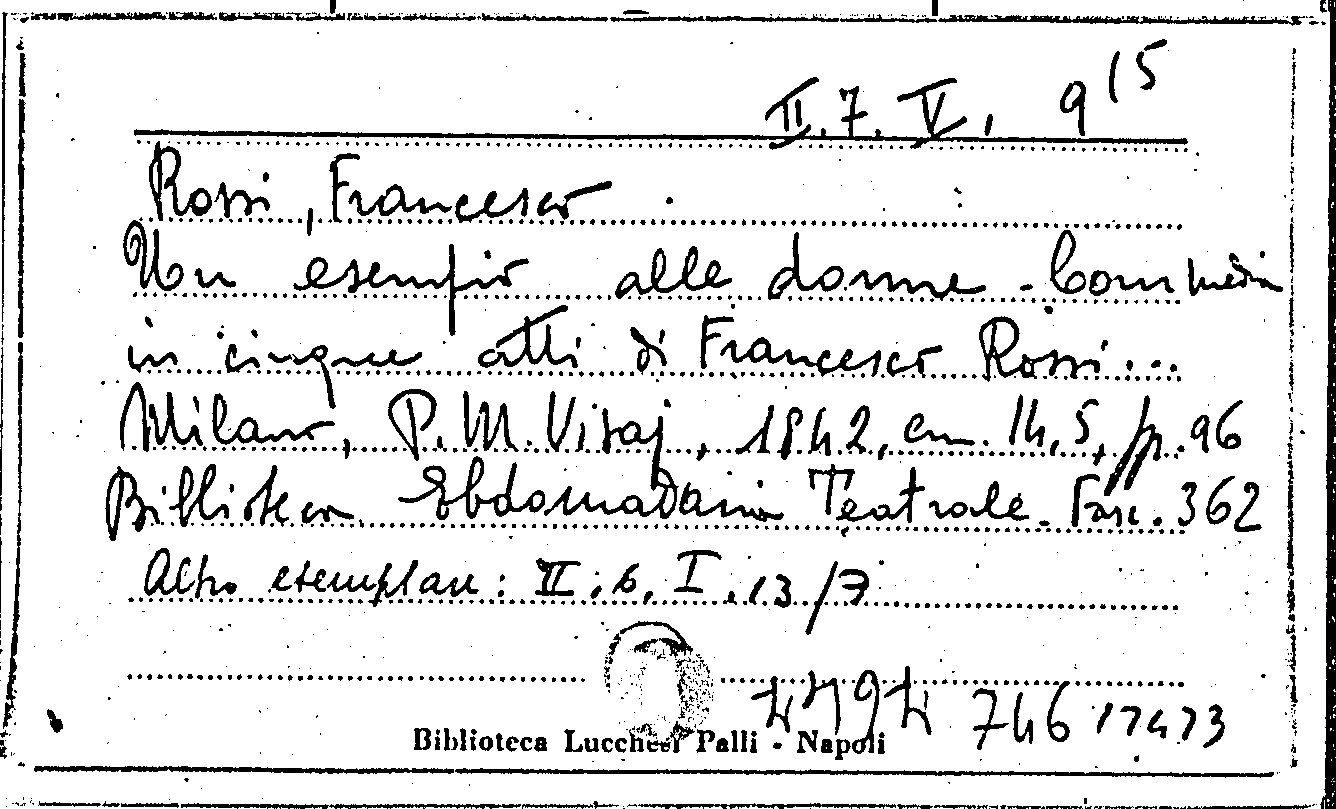 II. 7. V, 9 15
Rossi, Francesco
Un esempio alle donne - Commedia
in cinque atti di Francesco Rossi...
Milano, P. M. Visaj, 1842, cm. 14,5, pp. 96
Biblioteca Ebdomadaria Teatrale. Fasc. 362
Altro esemplare: II. 6. I. 13/7
746 17473
Biblioteca Lucchesi Palli - Napoli